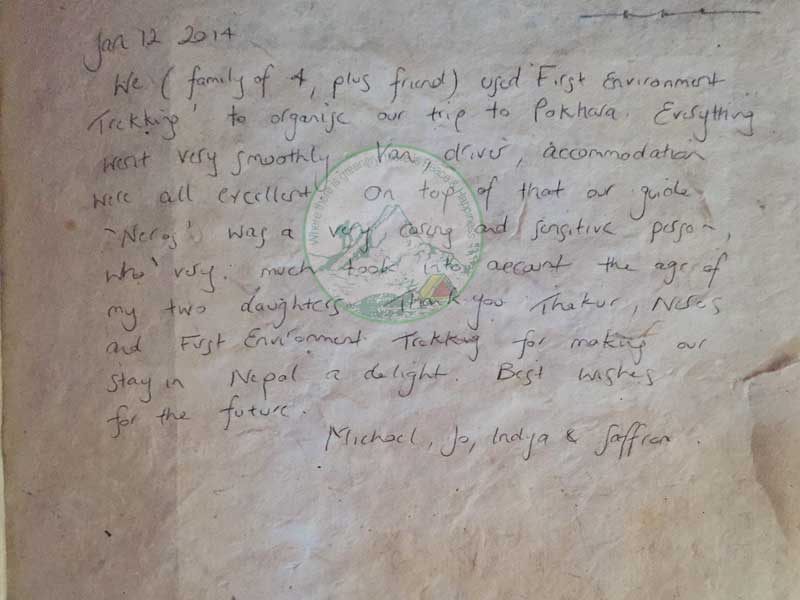 Jan 12 2014
We (family of 4, plus friend) used First Environment
Trekking' to organise our trip to Pokhara. Everything
went very smoothly Van, driver, accommodation
were all excellent. On top of that our guide
'Neros' was a very caring and sensitive person,
who very much took into account the age of
my two daughters. Thank you Thakur, Neros
and First Environment Trekking for making our
stay in Nepal a delight. Best wishes
for the future.
Michael, Jo, Indya & Saffron.
Where there is greenery there is peace &
happiness